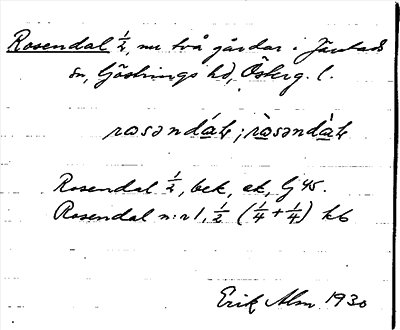 Rosendal ½, nu två gårdar i Järstads
sn, Göstrings hd, Österg. l.
rosəndáɫ; ròsəndàɫ
Rosendal ½, bek, ek, Gj 45.
Rosendal n:r 1, ½ (¼+¼) kb
Erik Alm 1930